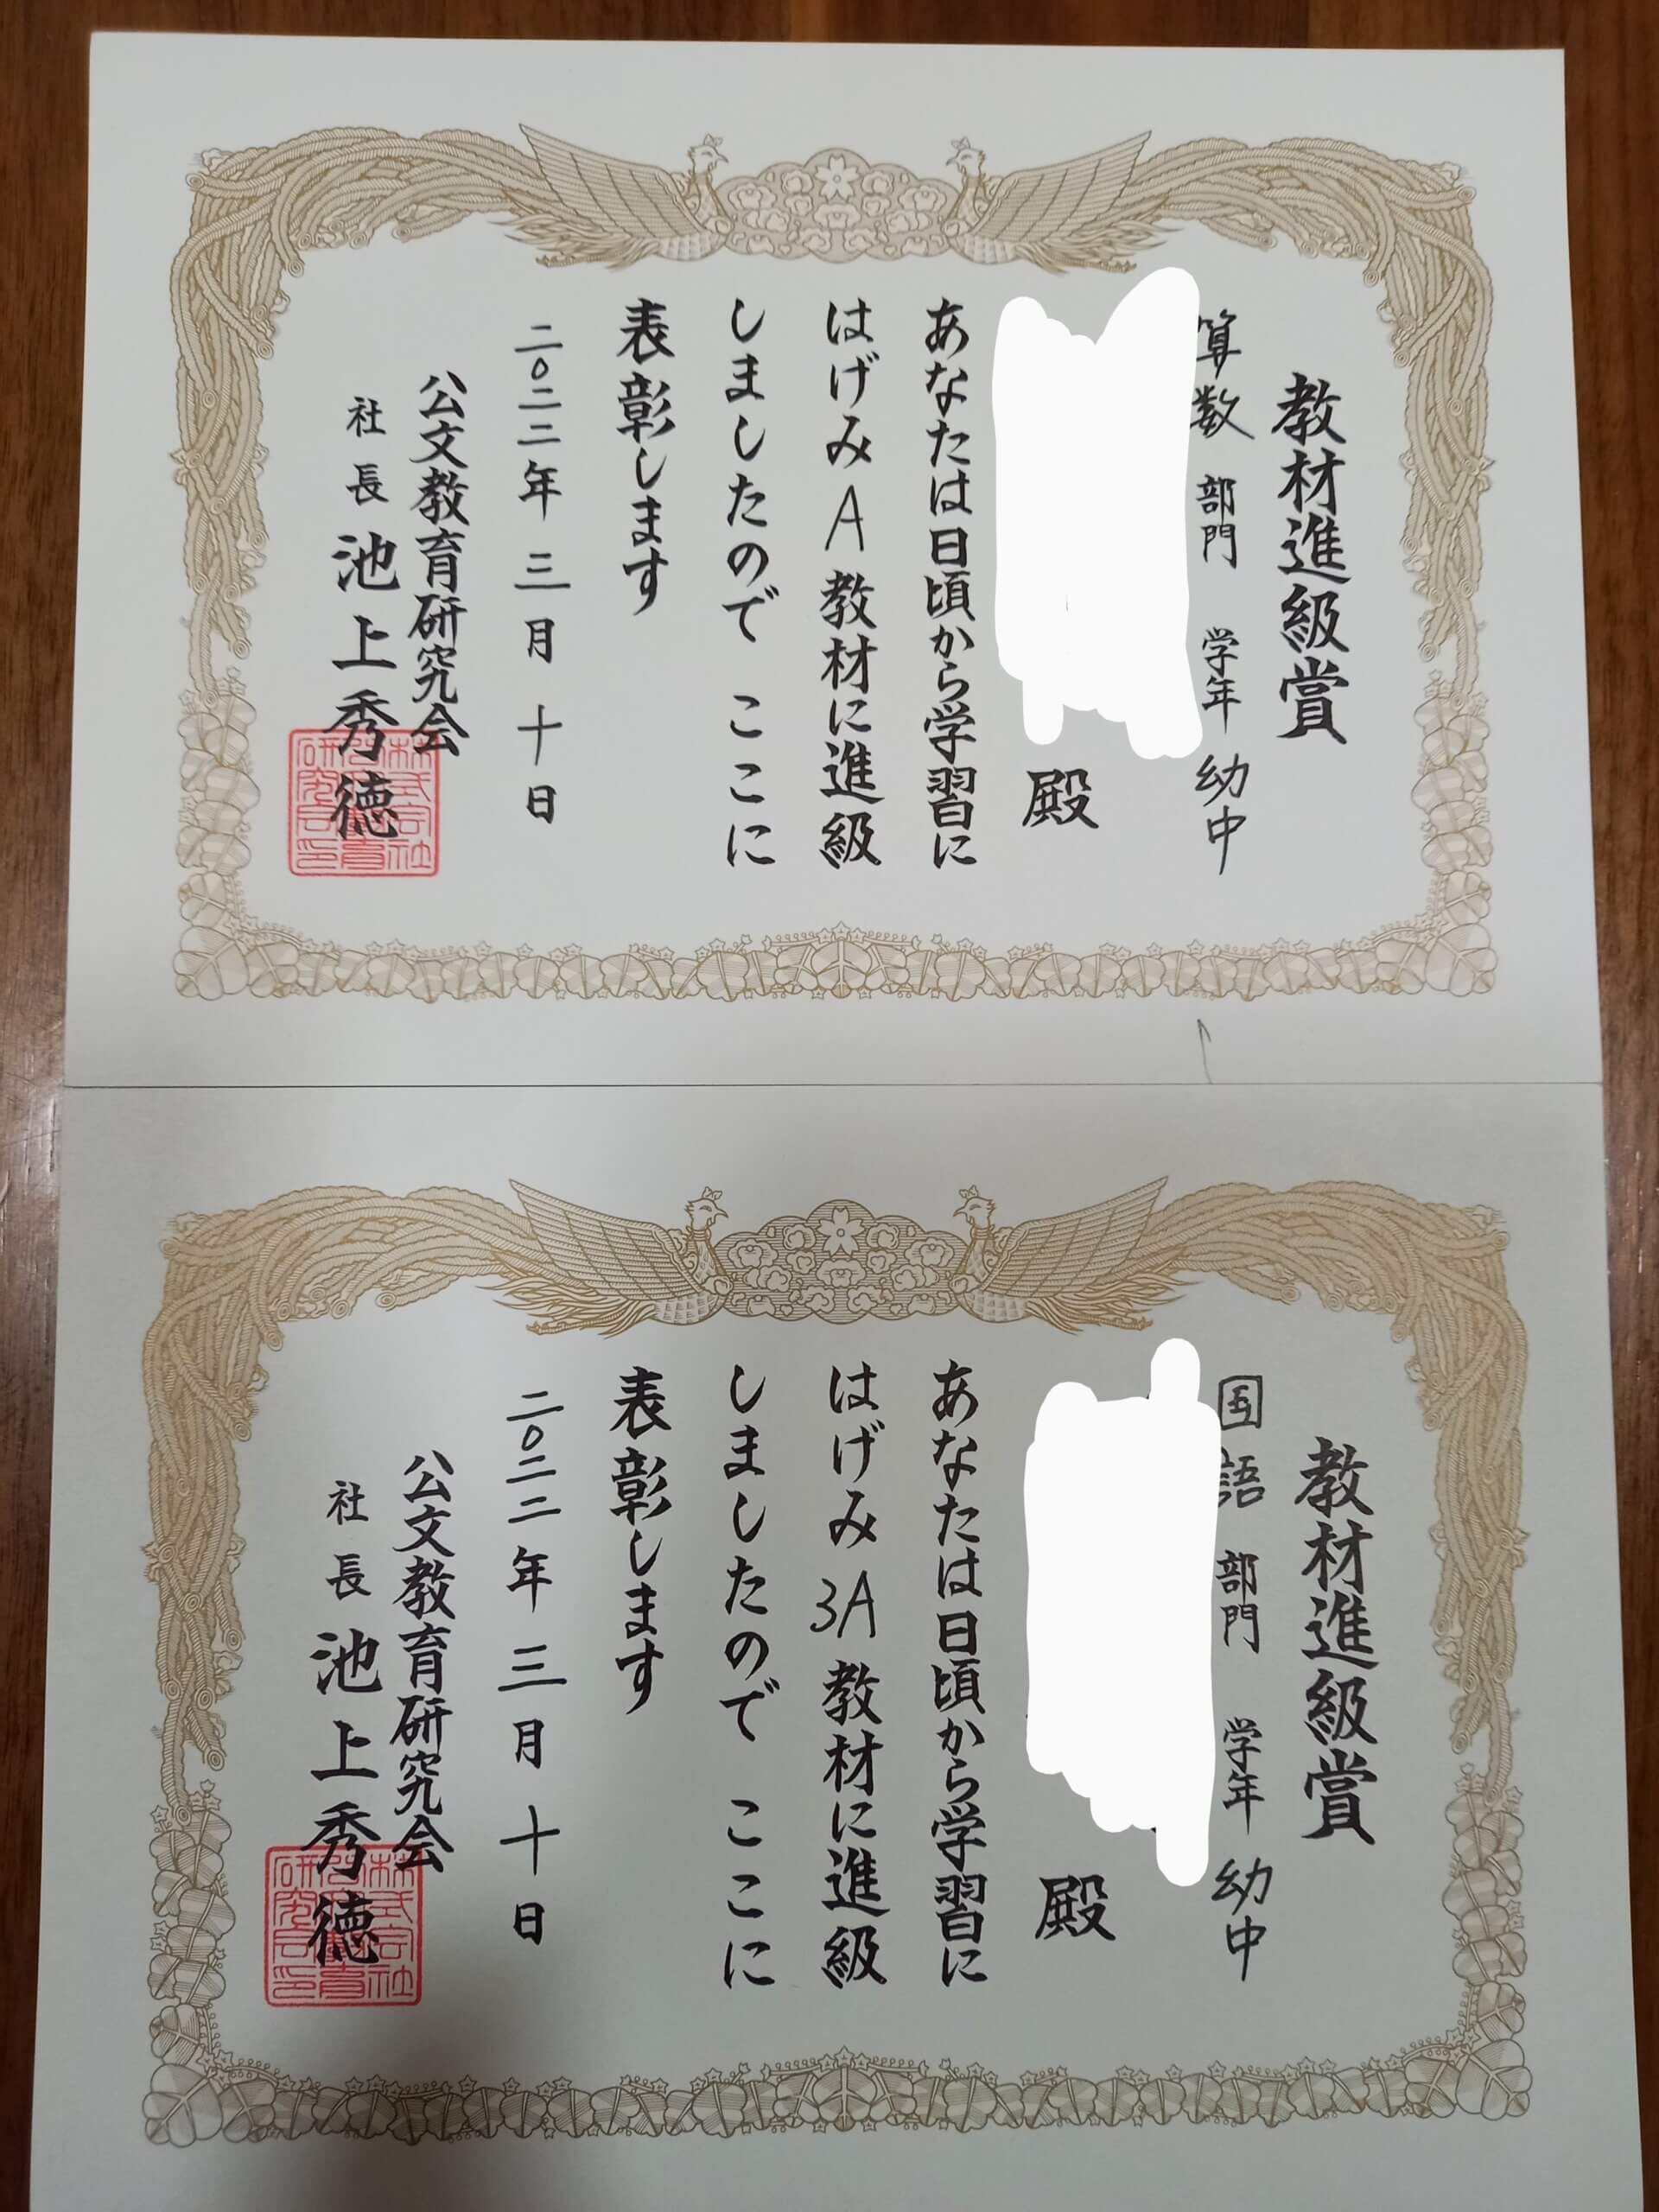 教材進級賞
算数 部門 学年 幼中
殿
あなたは日頃から学習に
はげみ A 教材に進級
しましたので ここに
表彰します
二〇二二年 三月 十日
公文教育研究会
社長 池上秀徳
教材進級賞
国語 部門 学年 幼中
殿
あなたは日頃から学習に
はげみ 3A 教材に進級
しましたので ここに
表彰します
二〇二二年 三月 十日
公文教育研究会
社長 池上秀徳